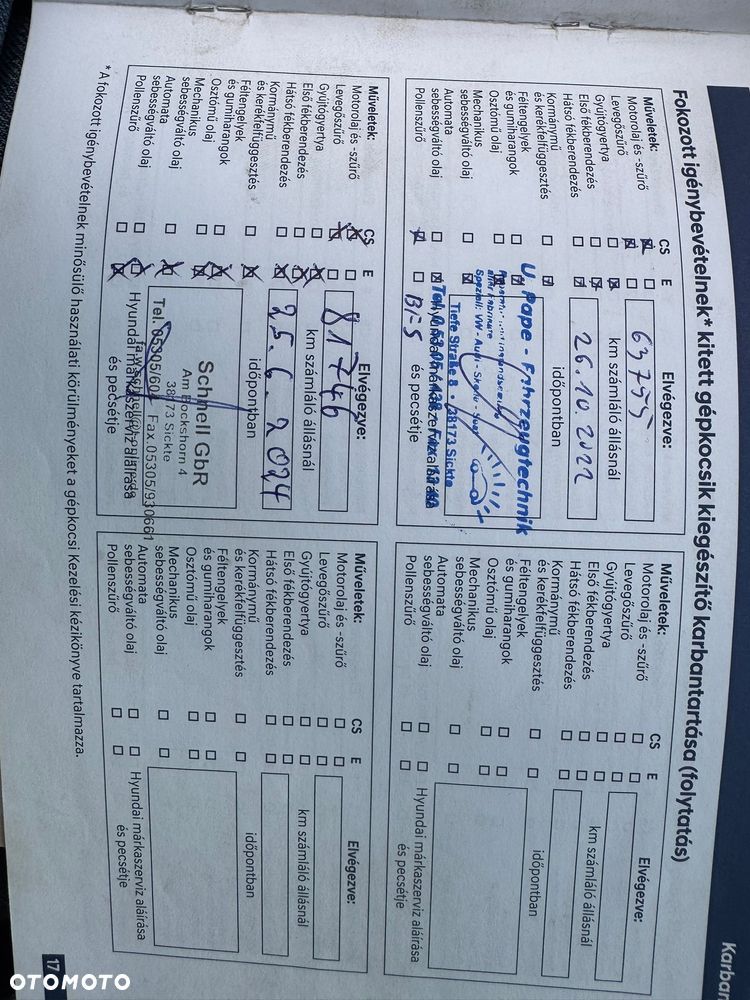 Karban
Fokozott igénybevételnek* kitett gépkocsik kiegészítő karbantartása (folytatás)
Műveletek:
CS
E
Motorolaj és -szűrő
Levegőszűrő
Gyújtógyertya
Első fékberendezés
Hátsó fékberendezés
Kormánymű
és kerékfelfüggesztés
Féltengelyek
és gumiharangok
Osztómű olaj
Mechanikus
sebességváltó olaj
Automata
sebességváltó olaj
Pollenszűrő
Elvégezve:
63755
km számláló állásnál
26.10.2022
időpontban
U. Pape - Fahrzeugtechnik
Speziell: VW - Audi - Skoda - Seat
Tiefe Straße 8 • 38173 Sickte
és pecsétje
Műveletek:
CS
E
Motorolaj és -szűrő
Levegőszűrő
Gyújtógyertya
Első fékberendezés
Hátsó fékberendezés
Kormánymű
és kerékfelfüggesztés
Féltengelyek
és gumiharangok
Osztómű olaj
Mechanikus
sebességváltó olaj
Automata
sebességváltó olaj
Pollenszűrő
Elvégezve:
km számláló állásnál
időpontban
Hyundai márkaszerviz aláírása
és pecsétje
Műveletek:
CS
E
Motorolaj és -szűrő
Levegőszűrő
Gyújtógyertya
Első fékberendezés
Hátsó fékberendezés
Kormánymű
és kerékfelfüggesztés
Féltengelyek
és gumiharangok
Osztómű olaj
Mechanikus
sebességváltó olaj
Automata
sebességváltó olaj
Pollenszűrő
Elvégezve:
81746
km számláló állásnál
25.6.2024
időpontban
Schnell GbR
Am Bockshorn 4
38173 Sickte
Tel. 05305/604 Fax.05305/930661
Hyundai márkaszerviz aláírása
és pecsétje
Műveletek:
CS
E
Motorolaj és -szűrő
Levegőszűrő
Gyújtógyertya
Első fékberendezés
Hátsó fékberendezés
Kormánymű
és kerékfelfüggesztés
Féltengelyek
és gumiharangok
Osztómű olaj
Mechanikus
sebességváltó olaj
Automata
sebességváltó olaj
Pollenszűrő
Elvégezve:
km számláló állásnál
időpontban
Hyundai márkaszerviz aláírása
és pecsétje
* A fokozott igénybevételnek minősülő használati körülményeket a gépkocsi Kezelési kézikönyve tartalmazza.
17
OTOMOTO